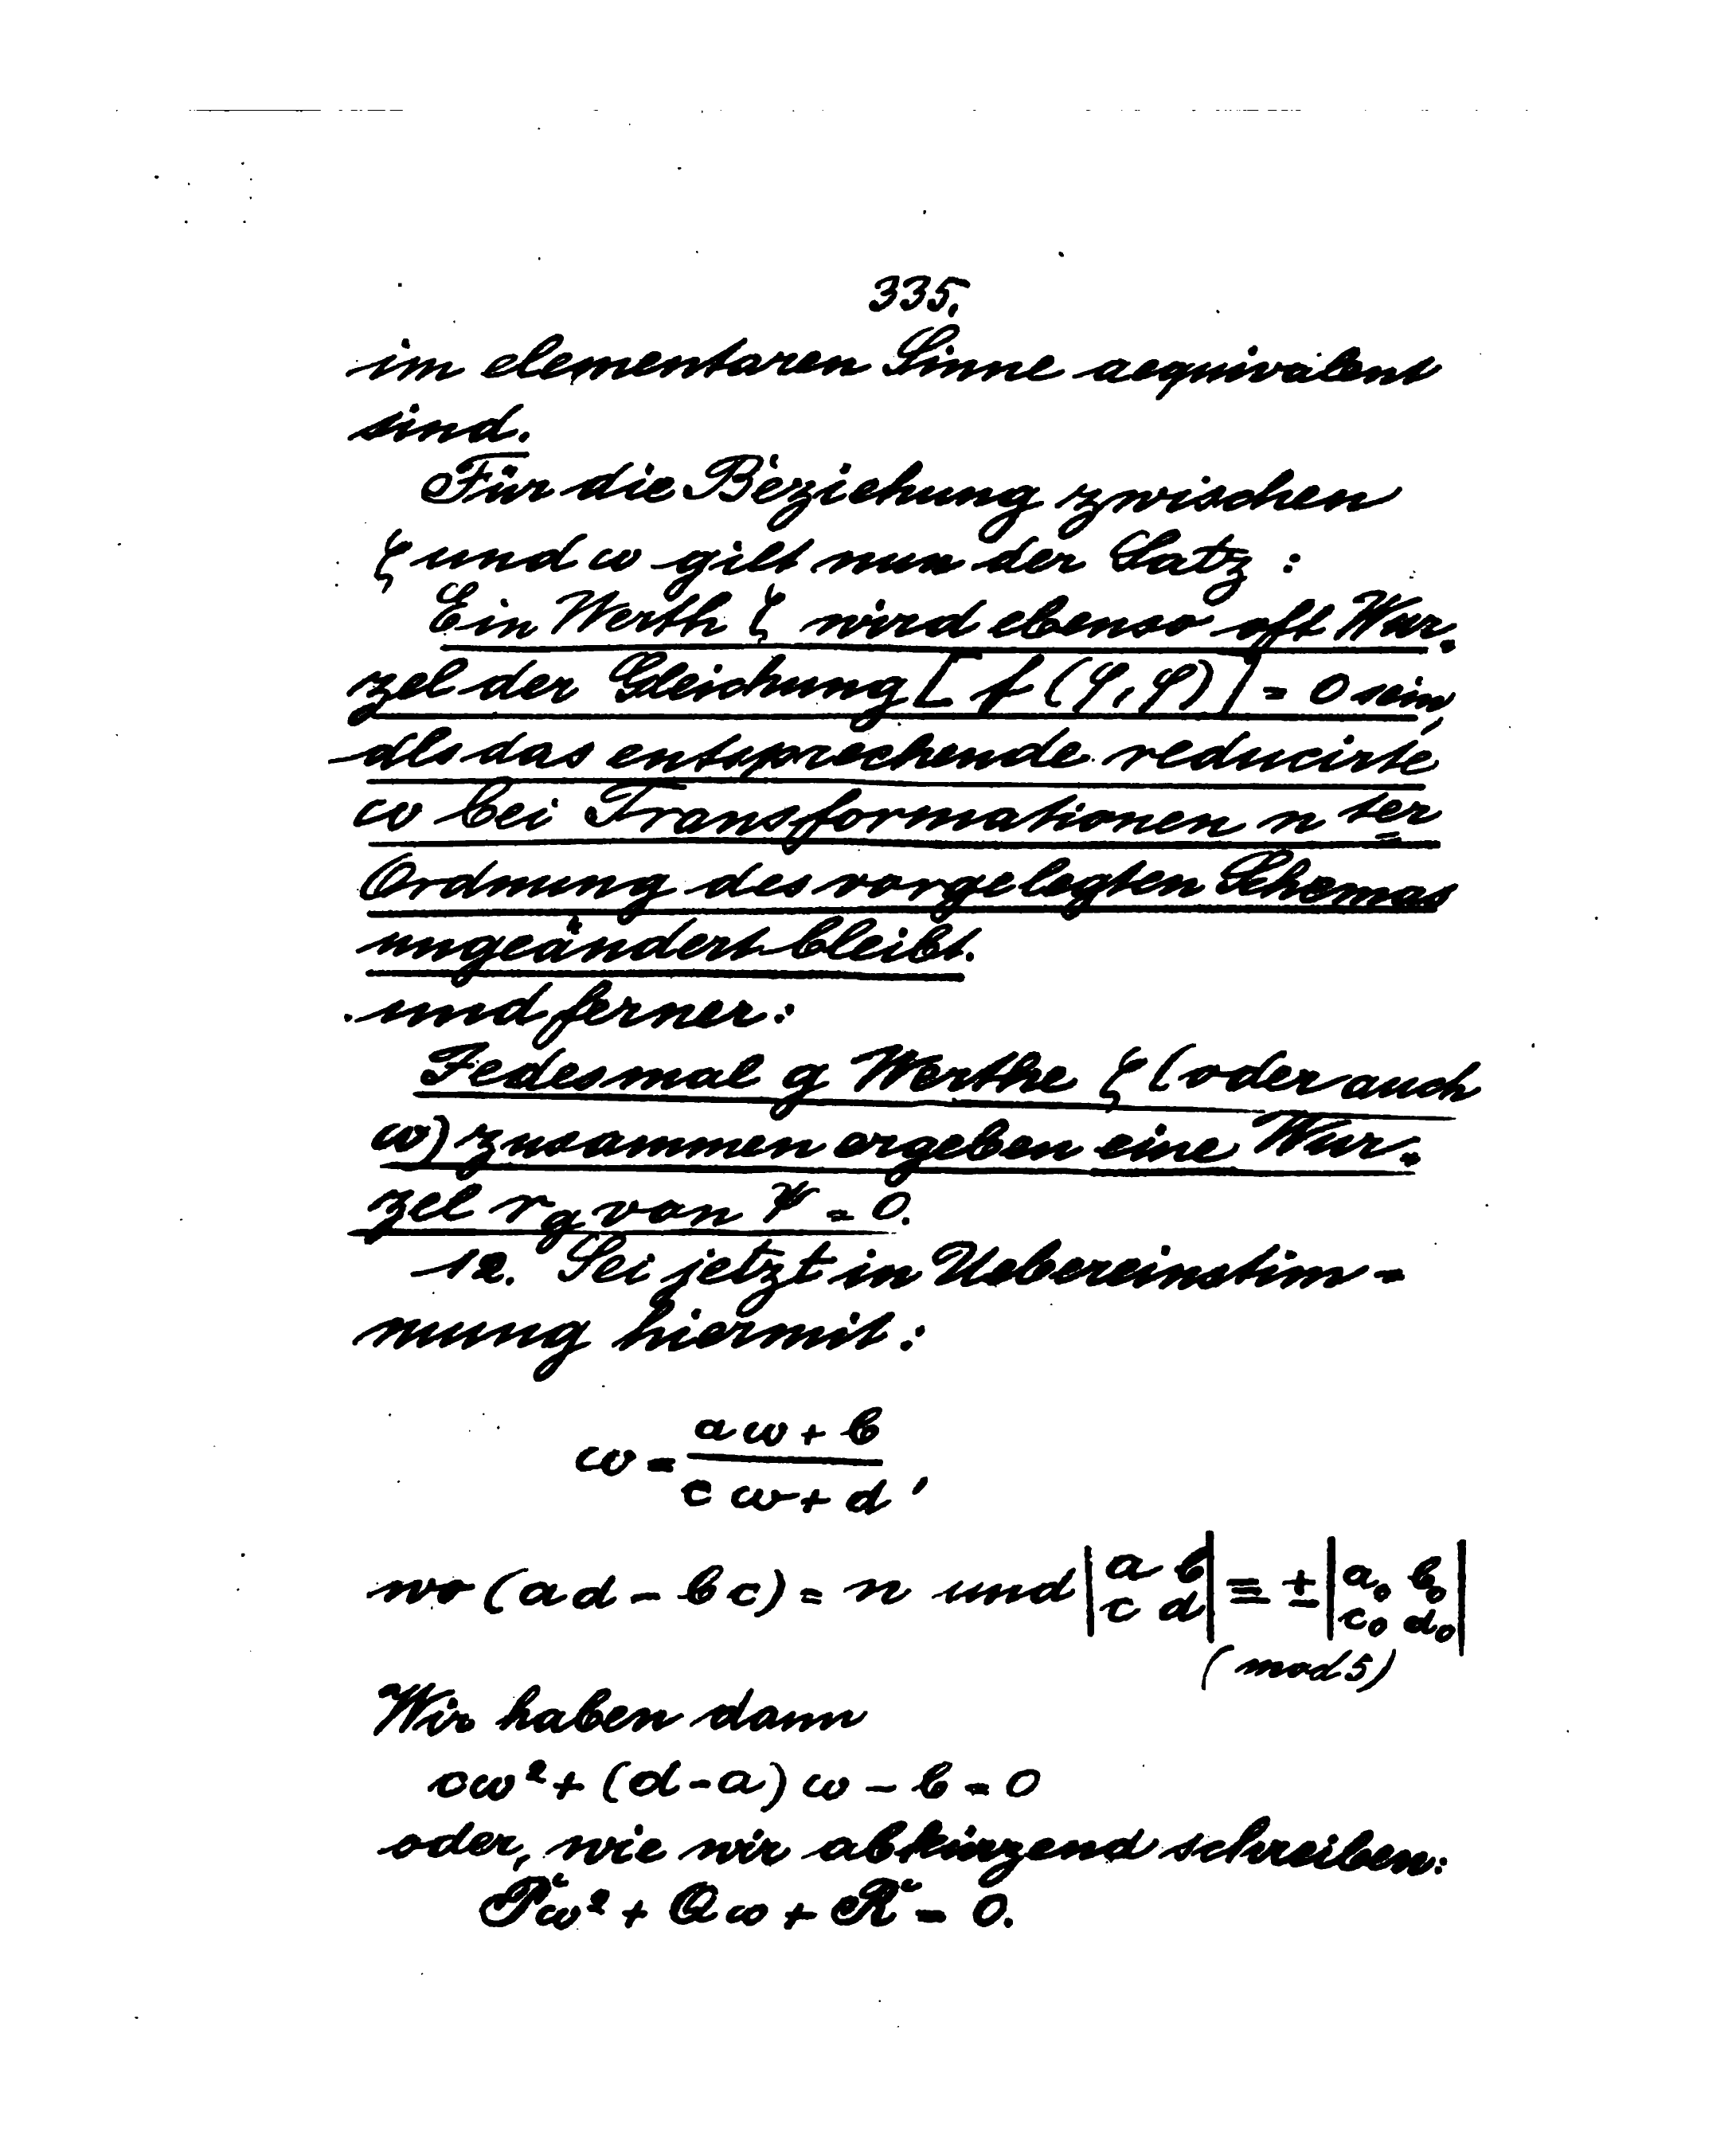 335.
im elementaren Sinne aequivalent
sind.
Für die Beziehung zwischen
ζ und ω gilt nun der Satz:
Ein Werth ζ wird ebenso oft Wur-
zel der Gleichung [f(φ,φ)] = 0 sein,
als das entsprechende reducirte
ω bei Transformationen n ter
Ordnung des vorgelegten Schemas
ungeändert bleibt.
und ferner:
Jedesmal g Werthe ζ (oder auch
ω) zusammen ergeben eine Wur-
zel r_g von Ψ = 0.
12. Sei jetzt in Uebereinstim-
mung hiermit:
ω = \frac{aω + b}{cω + d},
wo (ad - bc) = n und |a b; c d| ≡ ± |a₀ b₀; c₀ d₀|
(mod 5)
Wir haben dann
cω² + (d - a) ω - b = 0
oder, wie wir abkürzend schreiben:
Pω² + Qω + R = 0.